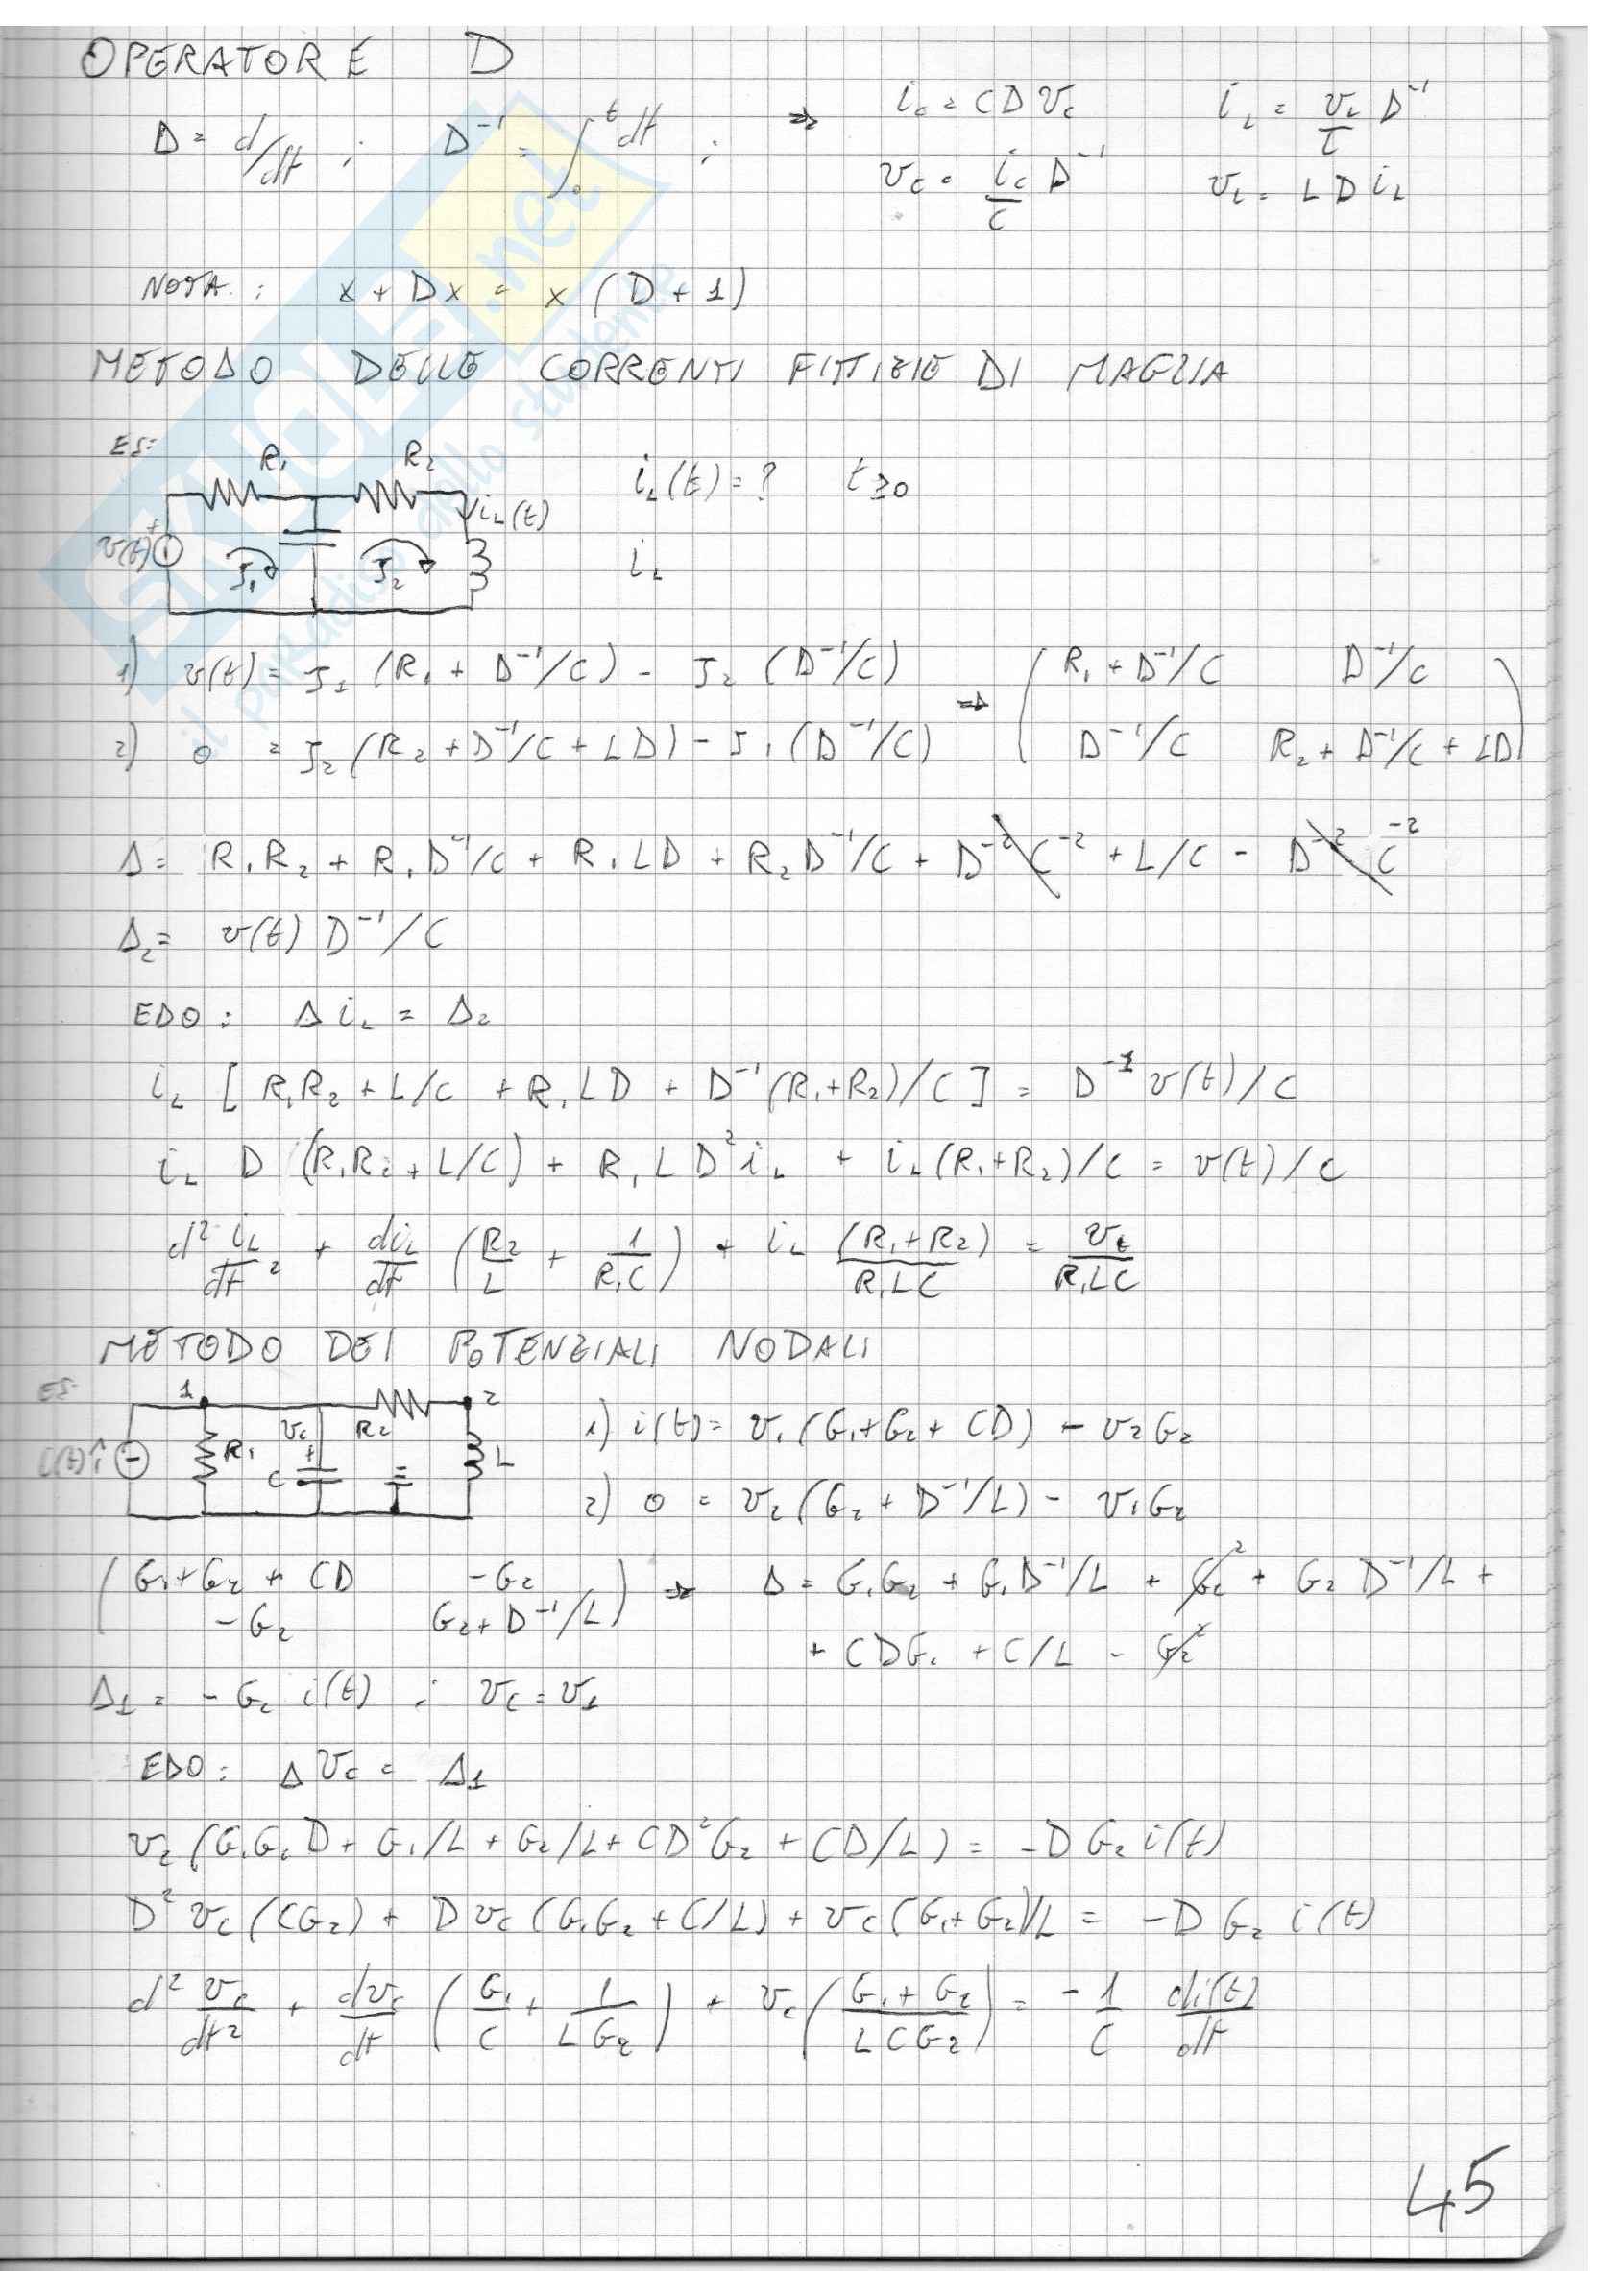 OPERATORE D
D = d/dt ; D⁻¹ = ∫₀ᵗ dt ; ⇒ i_C = C D v_C   i_L = v_L/L D⁻¹
v_C = i_C/C D⁻¹   v_L = L D i_L
NOTA : x + Dx = x (D + 1)
METODO DELLE CORRENTI FITTIZIE DI MAGLIA
ES:
R₁ R₂
i_L(t) = ? t ≥ 0
i_L(t)
v(t) + J₁ J₂ i_L
1) v(t) = J₁ (R₁ + D⁻¹/C) - J₂ (D⁻¹/C) ⇒ ( R₁ + D⁻¹/C   D⁻¹/C
2) 0 = J₂ (R₂ + D⁻¹/C + LD) - J₁ (D⁻¹/C)   D⁻¹/C   R₂ + D⁻¹/C + LD )
Δ = R₁R₂ + R₁D⁻¹/C + R₁LD + R₂D⁻¹/C + D⁻²C⁻² + L/C - D⁻²C⁻²
Δ₂ = v(t) D⁻¹/C
EDO : Δ i_L = Δ₂
i_L [ R₁R₂ + L/C + R₁LD + D⁻¹(R₁+R₂)/C ] = D⁻¹ v(t)/C
i_L D (R₁R₂ + L/C) + R₁ L D² i_L + i_L (R₁+R₂)/C = v(t)/C
d² i_L/dt² + di_L/dt (R₂/L + 1/R₁C) + i_L (R₁+R₂)/R₁LC = v_t/R₁LC
METODO DEI POTENZIALI NODALI
ES:
1 2
i(t) R₁ v_C + C R₂ L
1) i(t) = v₁ (G₁+G₂ + CD) - v₂G₂
2) 0 = v₂ (G₂ + D⁻¹/L) - v₁G₂
( G₁+G₂ + CD   -G₂ ) ⇒ Δ = G₁G₂ + G₁D⁻¹/L + G₂² + G₂ D⁻¹/L +
-G₂   G₂ + D⁻¹/L   + CDG₂ + C/L - G₂²
Δ₁ = - G₂ i(t) ; v_C = v₁
EDO : Δ v_C = Δ₁
v₂ (G₁G₂D + G₁/L + G₂/L + CD²G₂ + CD/L) = -D G₂ i(t)
D² v_C (CG₂) + D v_C (G₁G₂ + C/L) + v_C (G₁+G₂)/L = -D G₂ i(t)
d² v_C/dt² + dv_C/dt (G₁/C + 1/LG₂) + v_C (G₁+G₂/LCG₂) = - 1/C di(t)/dt
45
SKUOLA.net
il paradiso dello studente